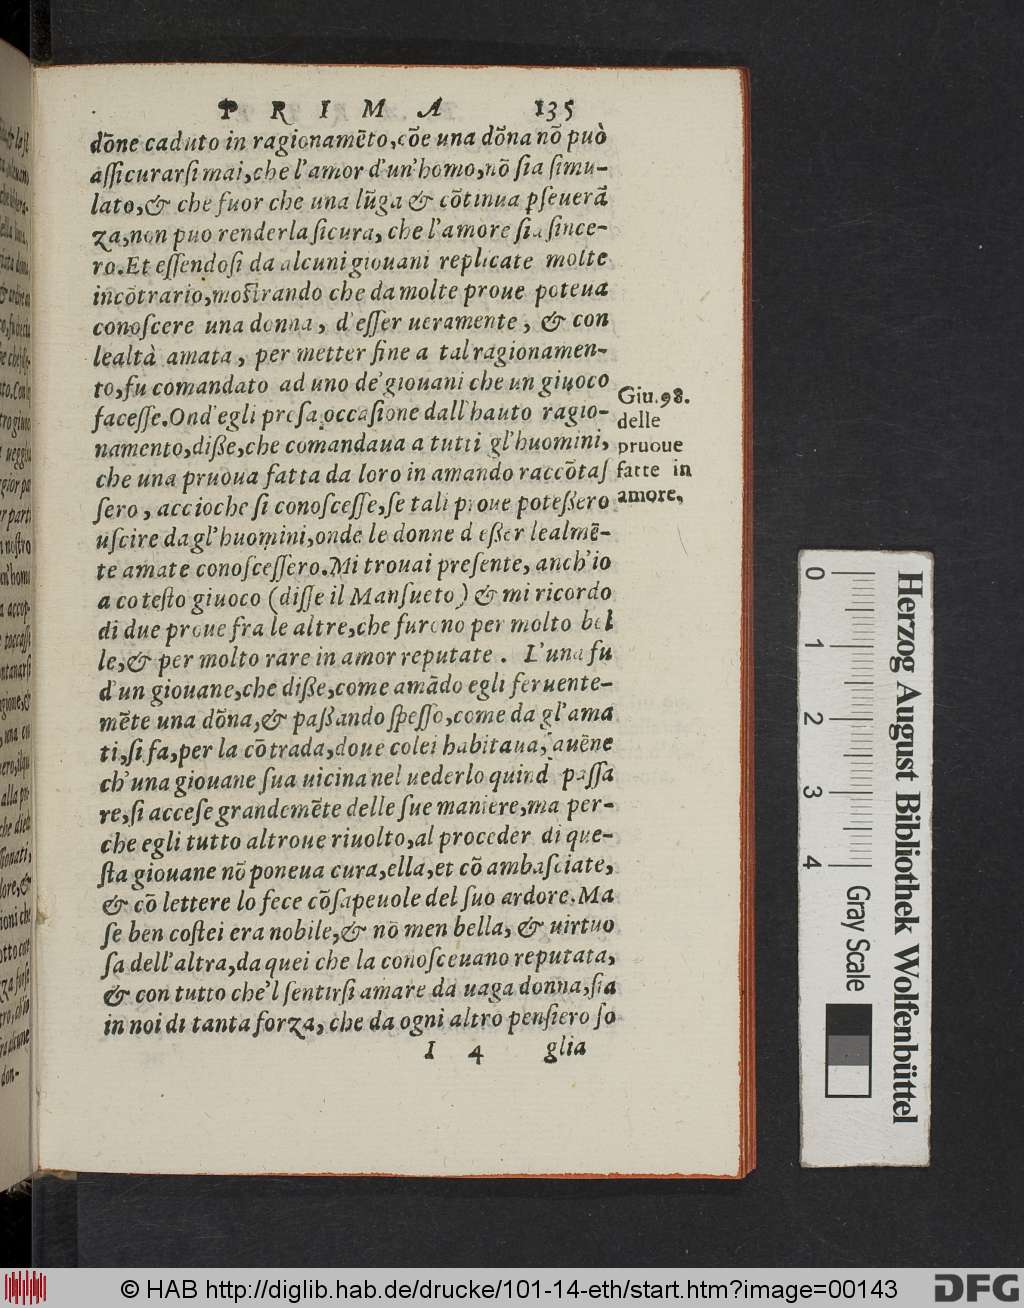 PRIMA 135
dõne caduto in ragionamẽto, cõe una dõna nõ può
aſſicurarſi mai, che l'amor d'un'homo, nõ ſia ſimu-
lato, & che fuor che una lũga & cõtinua ꝑſeuerã
za, non puo renderla ſicura, che l'amore ſia ſince-
ro. Et eſſendoſi da alcuni giouani replicate molte
incõtrario, moſtrando che da molte proue poteua
conoſcere una donna, d'eſſer ueramente, & con
lealtà amata, per metter fine a tal ragionamen-
to, fu comandato ad uno de' giouani che un giuoco
faceſſe. Ond'egli preſa occaſione dall'hauto ragio-
namento, diße, che comandaua a tutti gl'huomini,
che una pruoua fatta da loro in amando raccõtaſ
ſero, accioche ſi conoſceſſe, ſe tali proue poteßero
uſcire da gl'huomini, onde le donne d'eßer lealmẽ-
te amate conoſceſſero. Mi trouai preſente, anch'io
a coteſto giuoco (diſſe il Manſueto) & mi ricordo
di due proue fra le altre, che furono per molto bel
le, & per molto rare in amor reputate. L'una fu
d'un giouane, che diße, come amãdo egli feruente-
mẽte una dõna, & paßando ſpeſſo, come da gl'ama
ti, ſi fa, per la cõtrada, doue colei habitaua, auẽne
ch'una giouane ſua uicina nel uederlo quindi paſſa
re, ſi acceſe grandemẽte delle ſue maniere, ma per-
che egli tutto altroue riuolto, al proceder di que-
ſta giouane nõ poneua cura, ella, et cõ ambaſciate,
& cõ lettere lo fece cõſapeuole del ſuo ardore. Ma
ſe ben coſtei era nobile, & nõ men bella, & uirtuo
ſa dell'altra, da quei che la conoſceuano reputata,
& con tutto che'l ſentirſi amare da uaga donna, ſia
in noi di tanta forza, che da ogni altro penſiero ſo
I 4 glia
Giu. 98.
delle
pruoue
fatte in
amore,
0 1 2 3 4
Gray Scale
Herzog August Bibliothek Wolfenbüttel
© HAB http://diglib.hab.de/drucke/101-14-eth/start.htm?image=00143
DFG